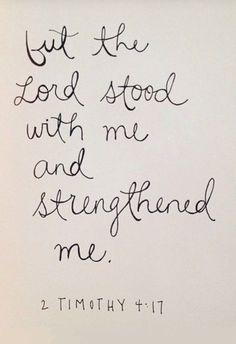 but the
Lord stood
with me
and
strengthened
me.
2 TIMOTHY 4:17